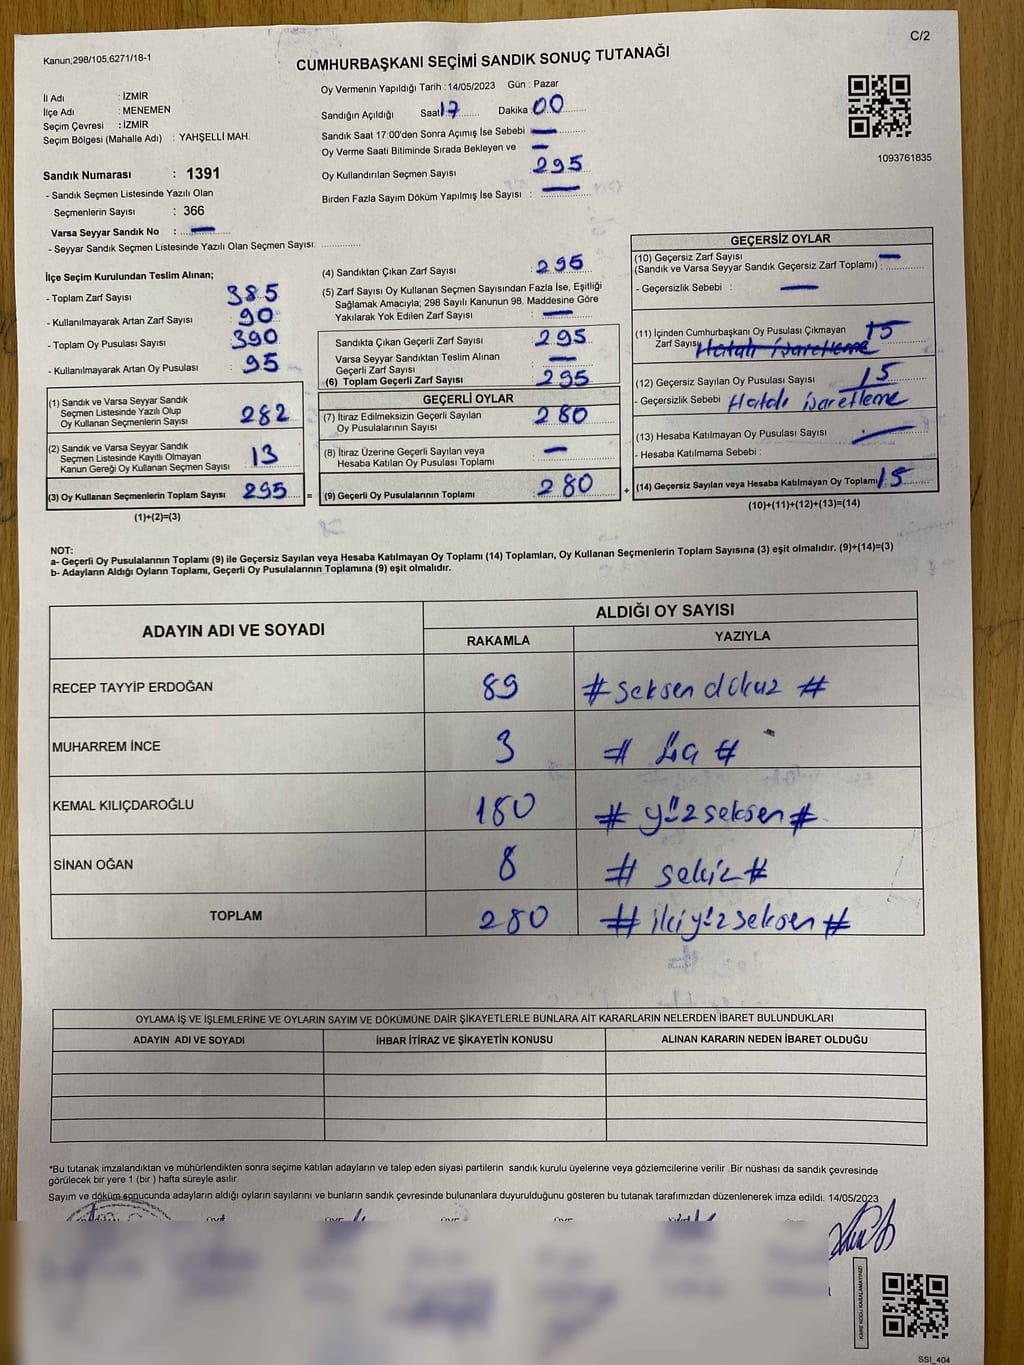 C/2
Kanun;298/105,6271/18-1
CUMHURBAŞKANI SEÇİMİ SANDIK SONUÇ TUTANAĞI
İl Adı : İZMİR
İlçe Adı : MENEMEN
Seçim Çevresi : İZMİR
Seçim Bölgesi (Mahalle Adı) : YAHŞELLİ MAH.
Sandık Numarası : 1391
- Sandık Seçmen Listesinde Yazılı Olan
Seçmenlerin Sayısı : 366
Varsa Seyyar Sandık No : —
- Seyyar Sandık Seçmen Listesinde Yazılı Olan Seçmen Sayısı:
Oy Vermenin Yapıldığı Tarih : 14/05/2023 Gün : Pazar
Sandığın Açıldığı Saat 17 Dakika 00
Sandık Saat 17:00'den Sonra Açımış İse Sebebi —
Oy Verme Saati Bitiminde Sırada Bekleyen ve —
Oy Kullandırılan Seçmen Sayısı : 295
Birden Fazla Sayım Döküm Yapılmış İse Sayısı : —
1093761835
İlçe Seçim Kurulundan Teslim Alınan;
- Toplam Zarf Sayısı 385
- Kullanılmayarak Artan Zarf Sayısı : 90
- Toplam Oy Pusulası Sayısı : 390
- Kullanılmayarak Artan Oy Pusulası : 95
(1) Sandık ve Varsa Seyyar Sandık
Seçmen Listesinde Yazılı Olup
Oy Kullanan Seçmenlerin Sayısı : 282
(2) Sandık ve Varsa Seyyar Sandık
Seçmen Listesinde Kayıtlı Olmayan
Kanun Gereği Oy Kullanan Seçmen Sayısı : 13
(3) Oy Kullanan Seçmenlerin Toplam Sayısı : 295 =
(1)+(2)=(3)
(4) Sandıktan Çıkan Zarf Sayısı : 295
(5) Zarf Sayısı Oy Kullanan Seçmen Sayısından Fazla İse, Eşitliği
Sağlamak Amacıyla; 298 Sayılı Kanunun 98. Maddesine Göre
Yakılarak Yok Edilen Zarf Sayısı : —
Sandıkta Çıkan Geçerli Zarf Sayısı : 295
Varsa Seyyar Sandıktan Teslim Alınan
Geçerli Zarf Sayısı : —
(6) Toplam Geçerli Zarf Sayısı : 295
GEÇERLİ OYLAR
(7) İtiraz Edilmeksizin Geçerli Sayılan
Oy Pusulalarının Sayısı : 280
(8) İtiraz Üzerine Geçerli Sayılan veya
Hesaba Katılan Oy Pusulası Toplamı : —
(9) Geçerli Oy Pusulalarının Toplamı : 280 +
GEÇERSİZ OYLAR
(10) Geçersiz Zarf Sayısı —
(Sandık ve Varsa Seyyar Sandık Geçersiz Zarf Toplamı) :
- Geçersizlik Sebebi : —
(11) İçinden Cumhurbaşkanı Oy Pusulası Çıkmayan
Zarf Sayısı 15
Hatalı işaretleme
(12) Geçersiz Sayılan Oy Pusulası Sayısı : 15
- Geçersizlik Sebebi Hatalı işaretleme
(13) Hesaba Katılmayan Oy Pusulası Sayısı : —
- Hesaba Katılmama Sebebi :
(14) Geçersiz Sayılan veya Hesaba Katılmayan Oy Toplamı 15
(10)+(11)+(12)+(13)=(14)
NOT:
a- Geçerli Oy Pusulalarının Toplamı (9) ile Geçersiz Sayılan veya Hesaba Katılmayan Oy Toplamı (14) Toplamları, Oy Kullanan Seçmenlerin Toplam Sayısına (3) eşit olmalıdır. (9)+(14)=(3)
b- Adayların Aldığı Oyların Toplamı, Geçerli Oy Pusulalarının Toplamına (9) eşit olmalıdır.
ADAYIN ADI VE SOYADI ALDIĞI OY SAYISI
RAKAMLA YAZIYLA
RECEP TAYYİP ERDOĞAN 89 # seksen dokuz #
MUHARREM İNCE 3 # üç #
KEMAL KILIÇDAROĞLU 180 # yüzseksen #
SİNAN OĞAN 8 # sekiz #
TOPLAM 280 # ikiyüzseksen #
OYLAMA İŞ VE İŞLEMLERİNE VE OYLARIN SAYIM VE DÖKÜMÜNE DAİR ŞİKAYETLERLE BUNLARA AİT KARARLARIN NELERDEN İBARET BULUNDUKLARI
ADAYIN ADI VE SOYADI İHBAR İTİRAZ VE ŞİKAYETİN KONUSU ALINAN KARARIN NEDEN İBARET OLDUĞU
*Bu tutanak imzalandıktan ve mühürlendikten sonra seçime katılan adayların ve talep eden siyasi partilerin sandık kurulu üyelerine veya gözlemcilerine verilir .Bir nüshası da sandık çevresinde
görülecek bir yere 1 (bir ) hafta süreyle asılır.
Sayım ve döküm sonucunda adayların aldığı oyların sayılarını ve bunların sandık çevresinde bulunanlara duyurulduğunu gösteren bu tutanak tarafımızdan düzenlenerek imza edildi. 14/05/2023
KARE KODU KARALAMAYINIZ!
SSI_404